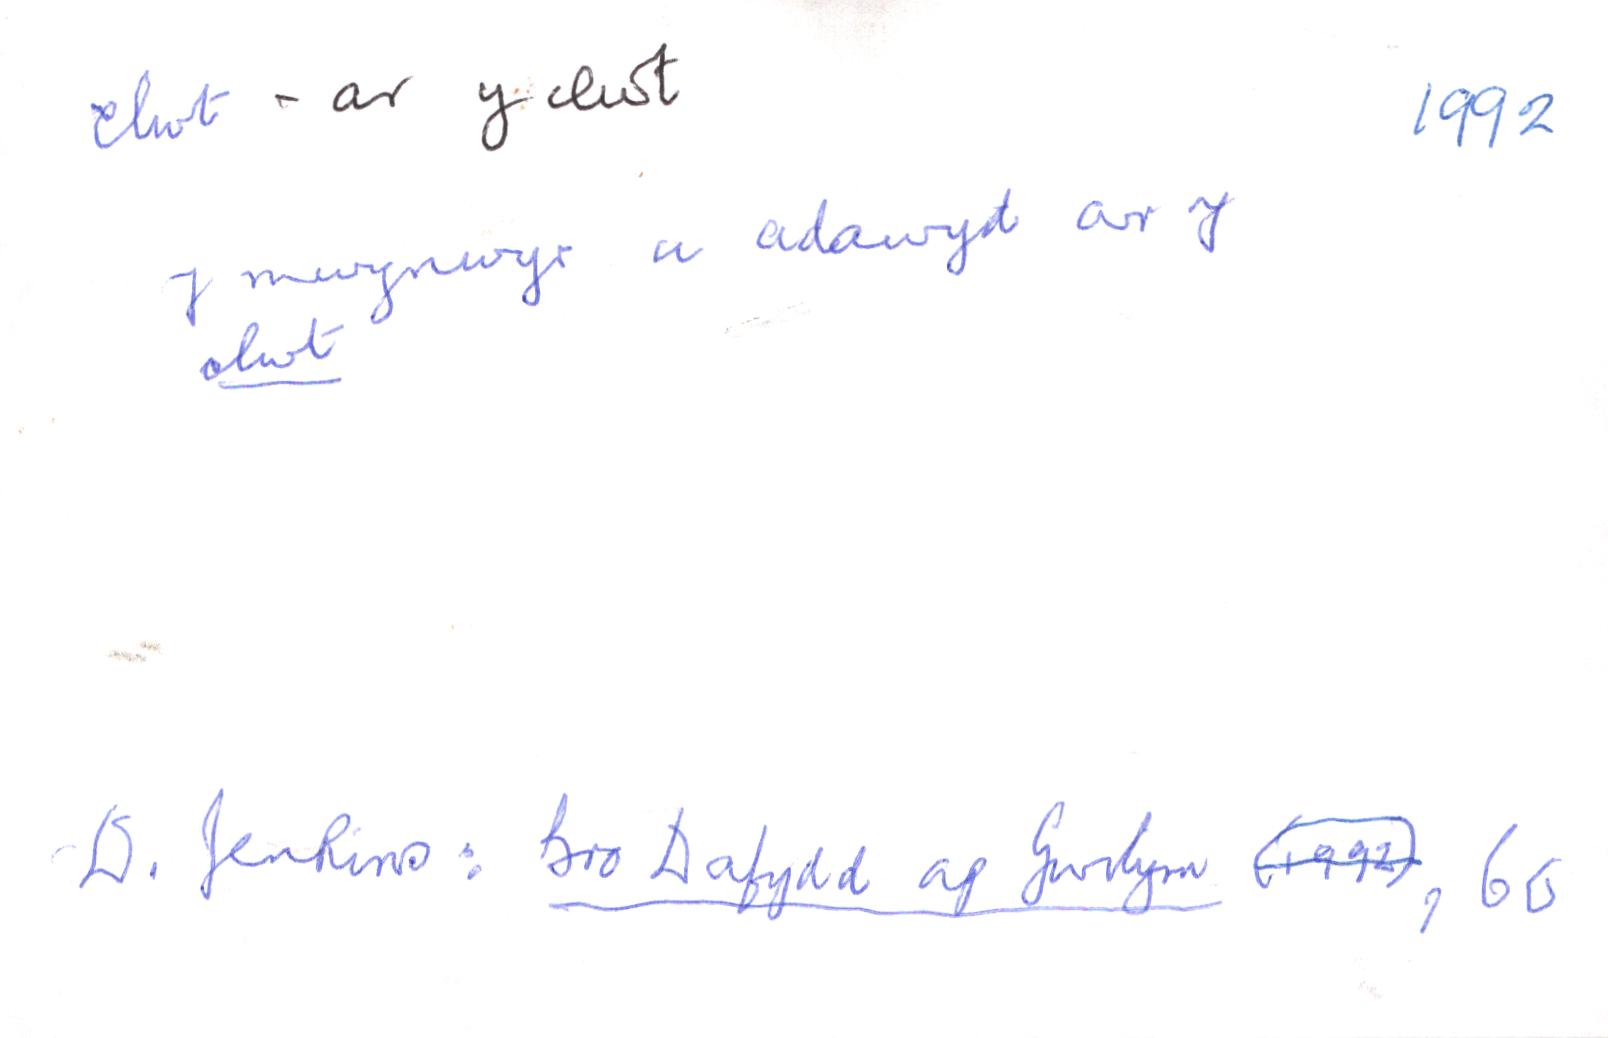 clwt - ar y clwt 1992
y mwynwyr a adawyd ar y
clwt
D. Jenkins: Bro Dafydd ap Gwilym (1992), 60